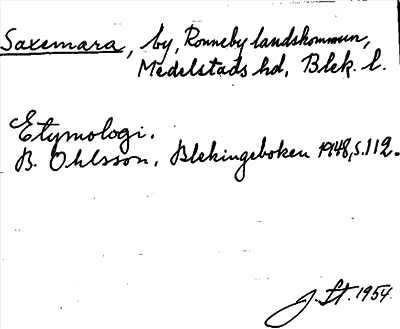 Saxemara, by, Ronneby landskommun,
Medelstads hd, Blek. l.
Etymologi.
B. Ohlsson, Blekingeboken 1948, s. 112.
J. St. 1954.